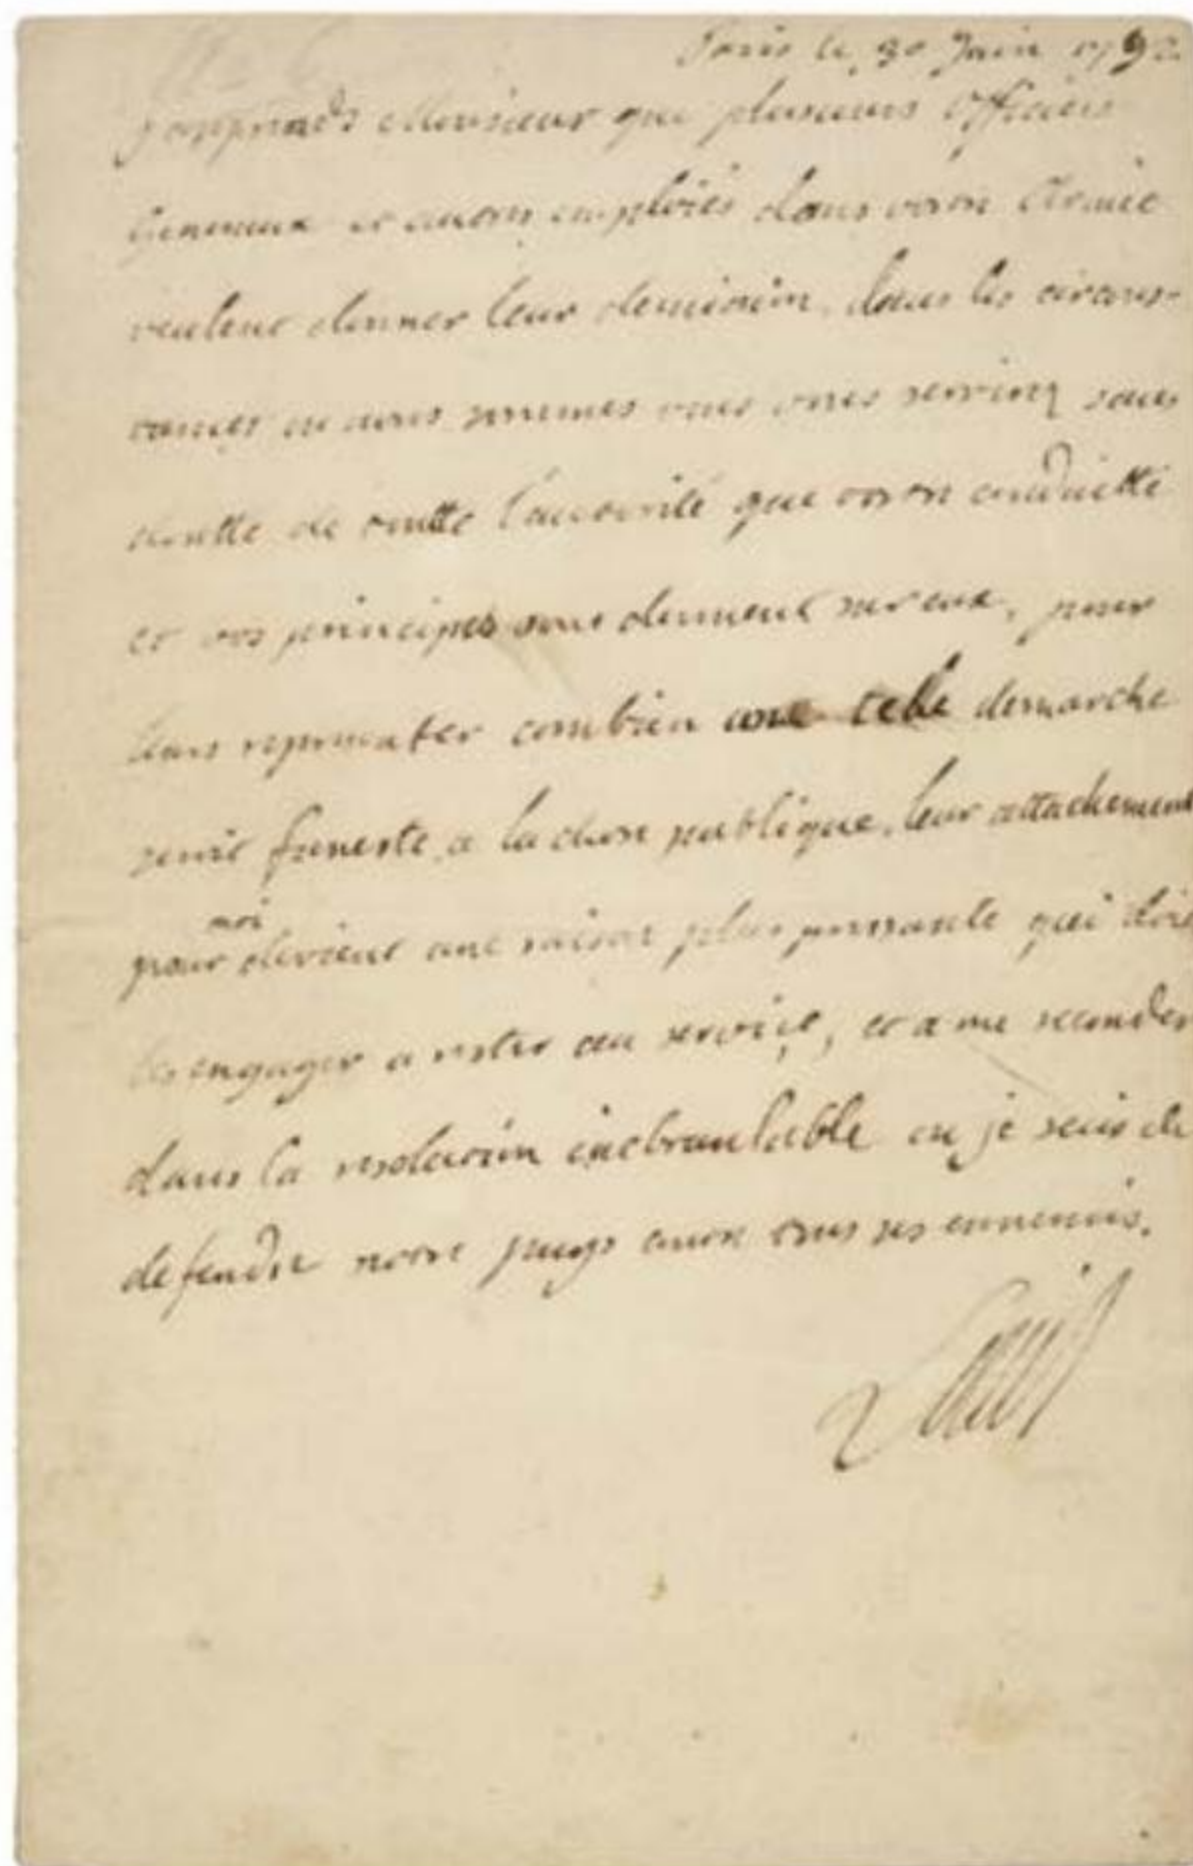 Paris le 30 Juin 1792
J'apprends Monsieur que plusieurs Officiers
Generaux et autres emploiés dans votre Armée
veulent donner leur demission. dans les circons-
tances ou nous sommes vous vous servirez sans
doutte de toutte l'autorité que votre conduitte
et vos principes vous donnent sur eux, pour
leurs representer combien une telle demarche
seroit funeste a la chose publique. leur attachement
pour moi devient une raison plus puissante qui doit
les engager a rester au service, et a me seconder
dans la resolution inebranlable ou je suis de
defendre notre pays contre tous ses ennemis.
Louis